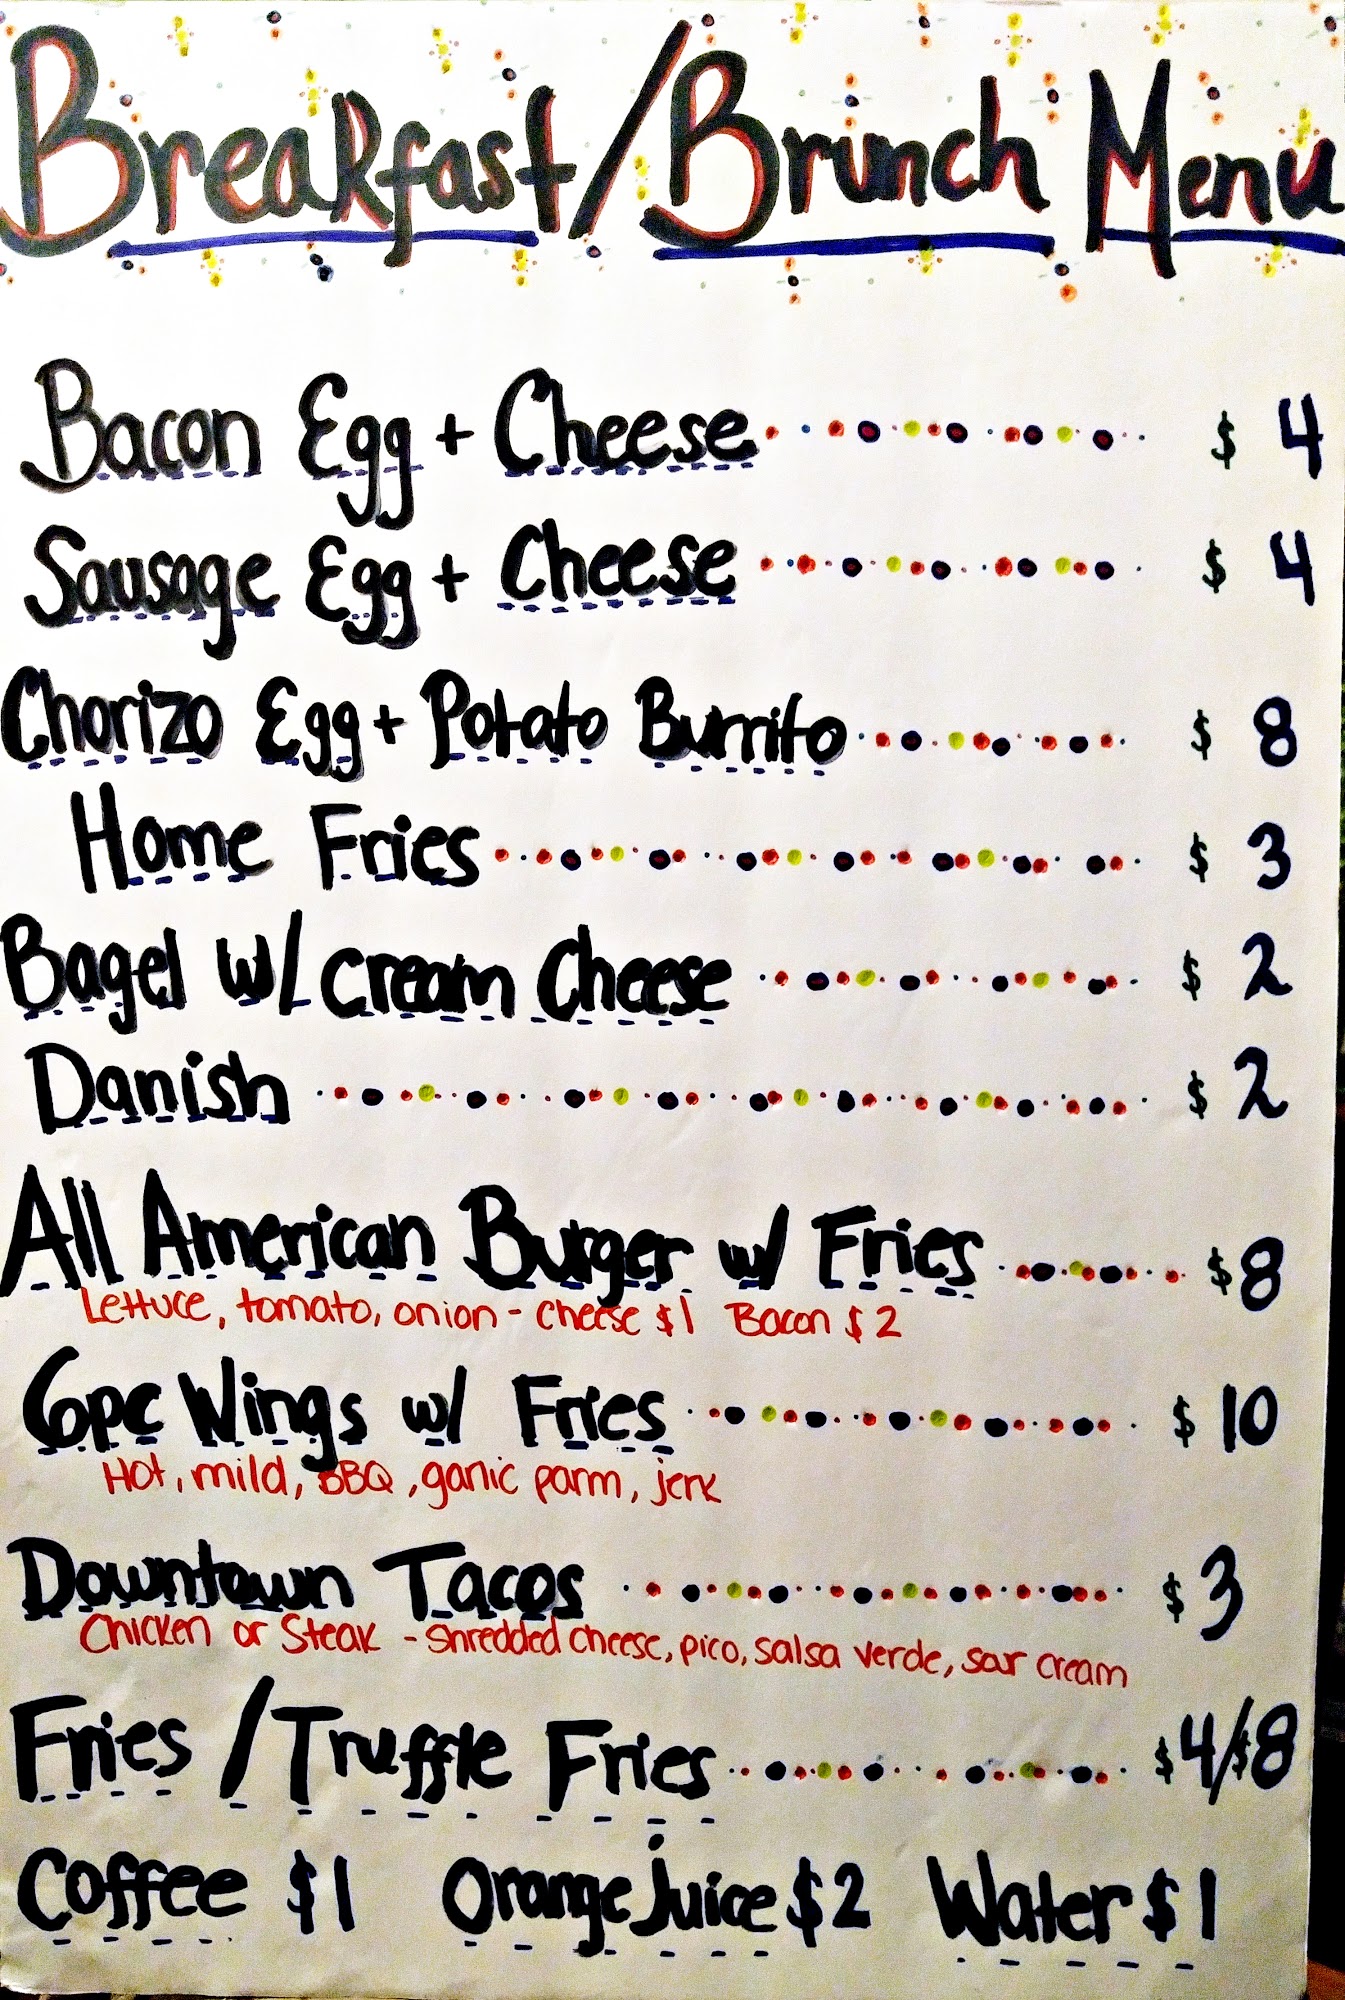 Breakfast/Brunch Menu
Bacon Egg + Cheese $ 4
Sausage Egg + Cheese $ 4
Chorizo Egg + Potato Burrito $ 8
Home Fries $ 3
Bagel w/ cream Cheese $ 2
Danish $ 2
All American Burger w/ Fries $8
Lettuce, tomato, onion - cheese $1 Bacon $2
6pc Wings w/ Fries $ 10
Hot, mild, BBQ, garlic parm, jerk
Downtown Tacos $ 3
Chicken or Steak - shredded cheese, pico, salsa verde, sour cream
Fries / Truffle Fries $4/$8
Coffee $1 Orange Juice $2 Water $1